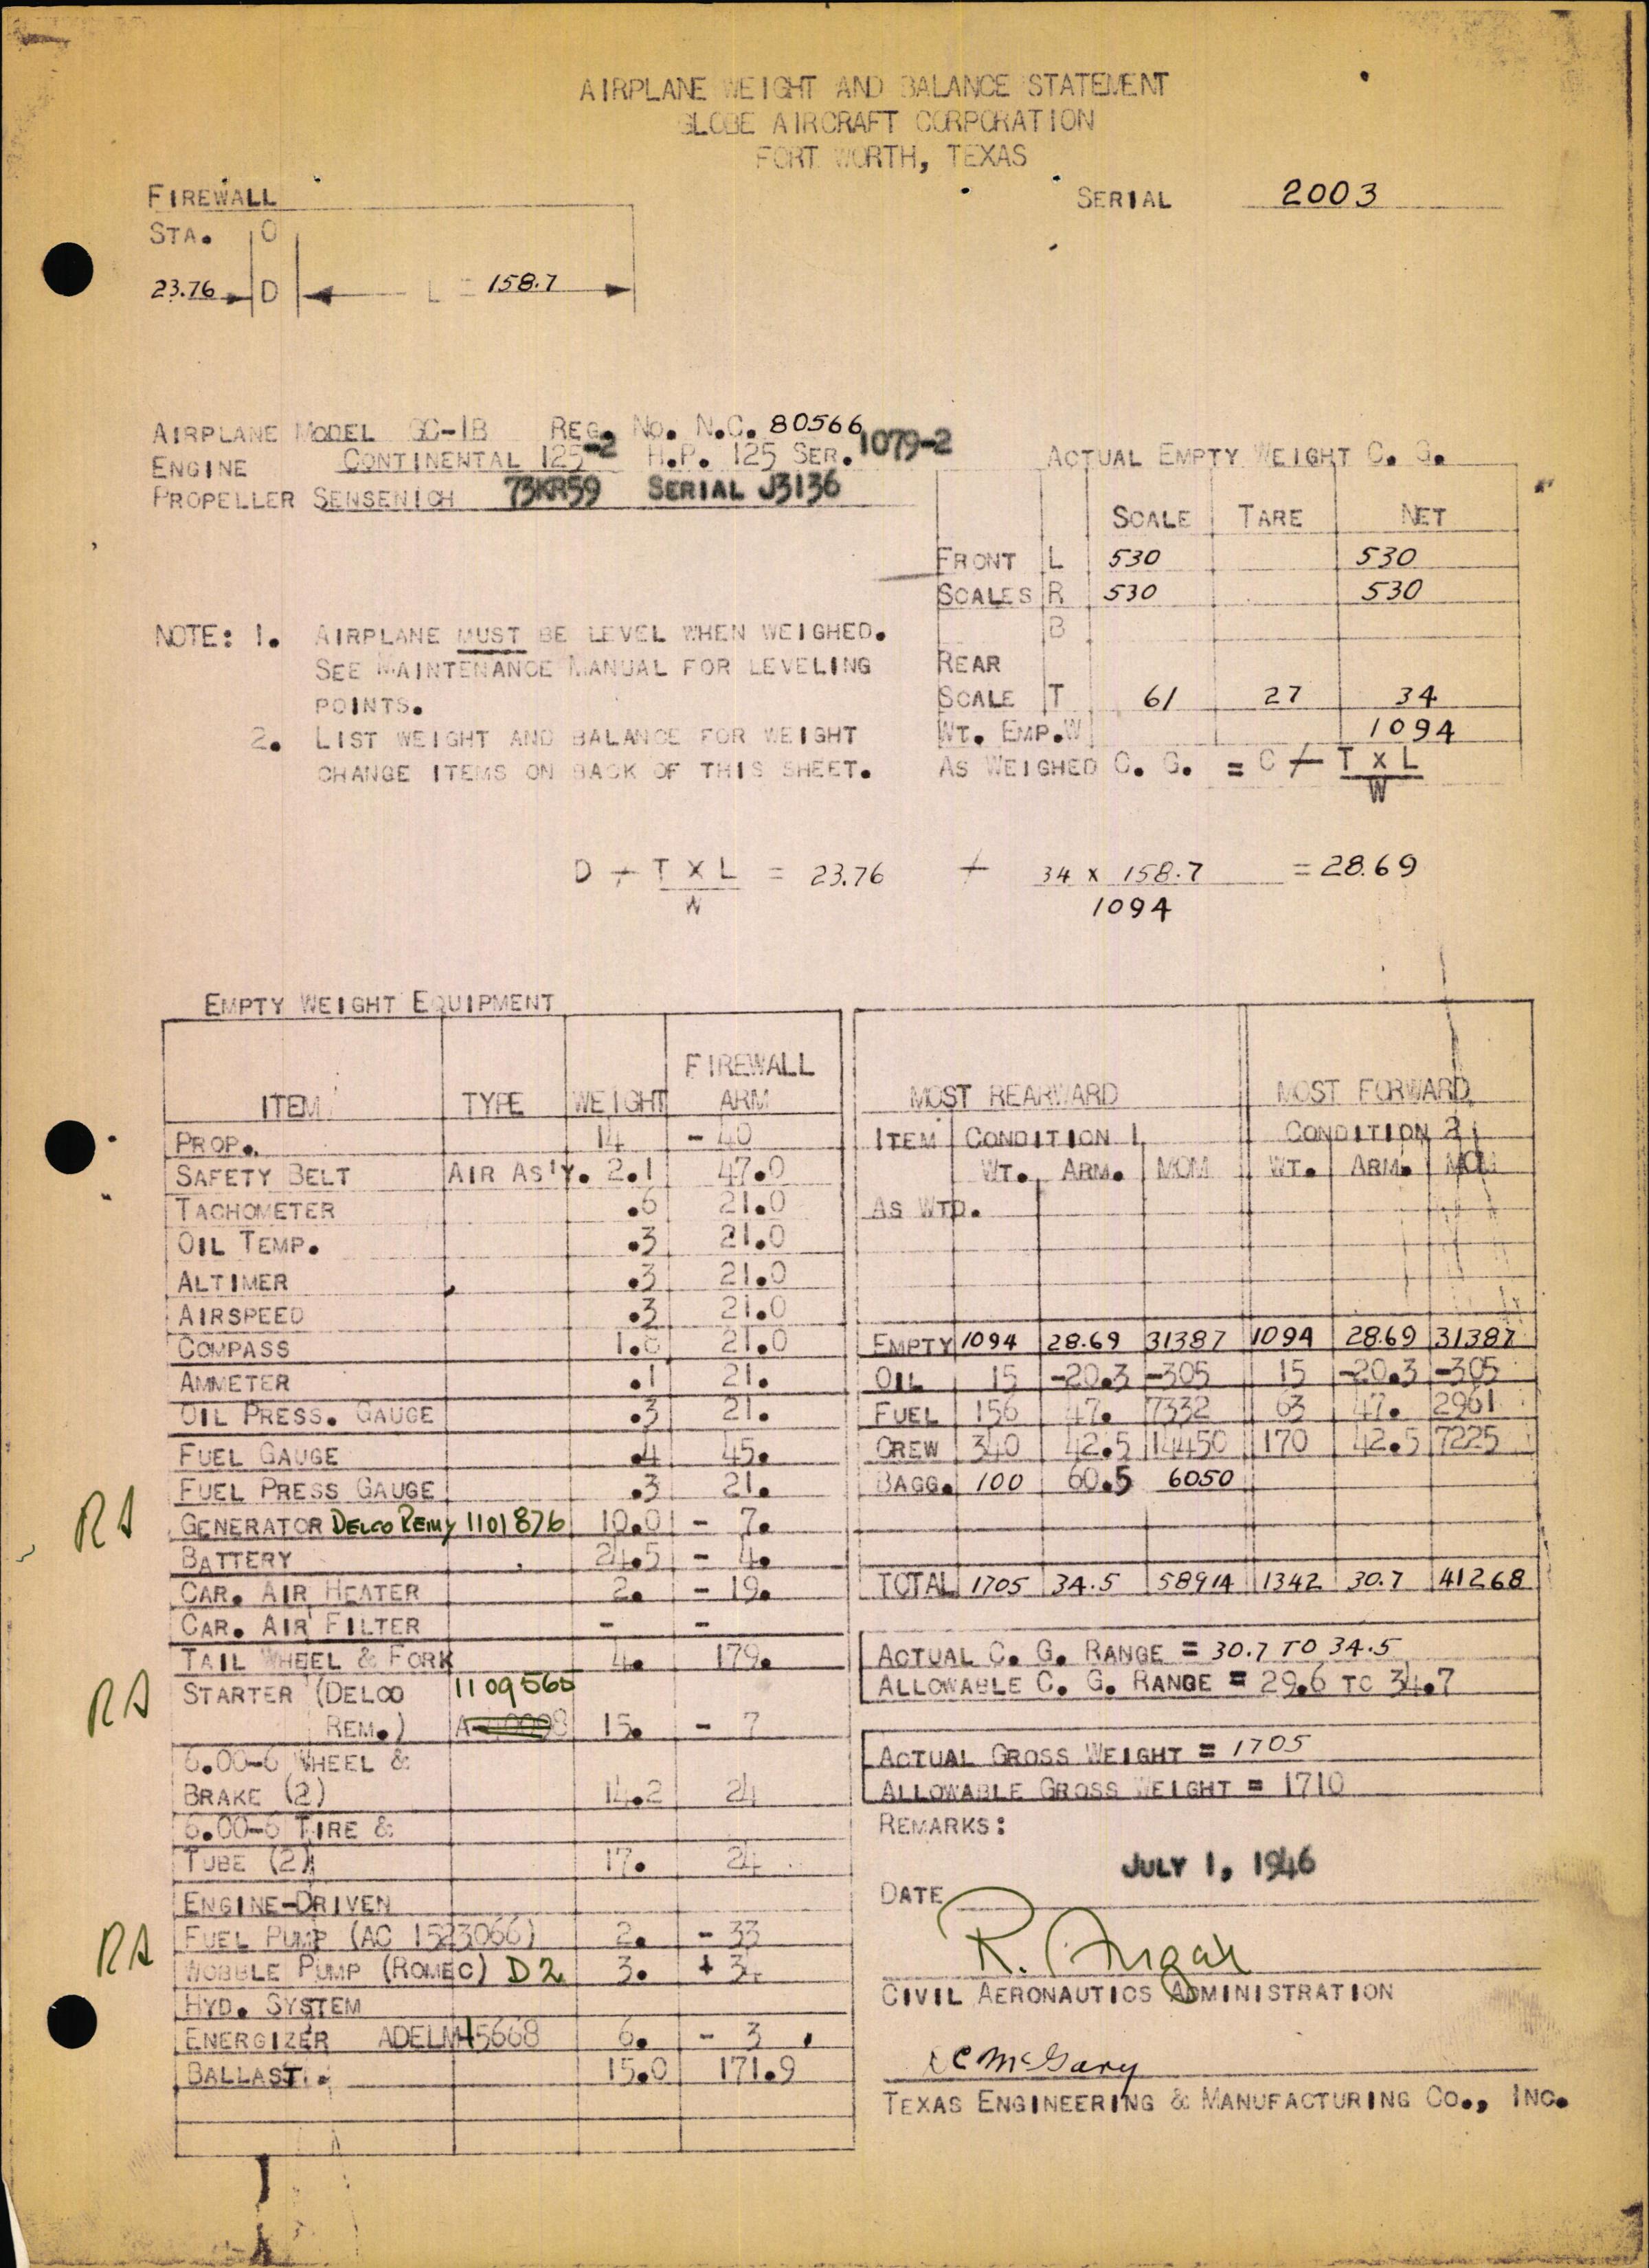 AIRPLANE WEIGHT AND BALANCE STATEMENT
GLOBE AIRCRAFT CORPORATION
FORT WORTH, TEXAS
FIREWALL
SERIAL 2003
STA. O
23.76 D L = 158.7
AIRPLANE MODEL GC-1B REG. NO. N.C. 80566
ENGINE CONTINENTAL 125-2 H.P. 125 SER. 1079-2
PROPELLER SENSENICH 73KR59 SERIAL J3136
ACTUAL EMPTY WEIGHT C. G.
SCALE TARE NET
FRONT L 530 530
SCALES R 530 530
B
REAR
SCALE T 61 27 34
WT. EMP.W 1094
AS WEIGHED C. G. = C + T X L
W
NOTE: 1. AIRPLANE MUST BE LEVEL WHEN WEIGHED.
SEE MAINTENANCE MANUAL FOR LEVELING
POINTS.
2. LIST WEIGHT AND BALANCE FOR WEIGHT
CHANGE ITEMS ON BACK OF THIS SHEET.
D + T X L = 23.76 + 34 x 158.7 = 28.69
W 1094
EMPTY WEIGHT EQUIPMENT
FIREWALL
ITEM TYPE WEIGHT ARM
PROP. 14 - 40
SAFETY BELT AIR AS'Y. 2.1 47.0
TACHOMETER .6 21.0
OIL TEMP. .3 21.0
ALTIMER .3 21.0
AIRSPEED .3 21.0
COMPASS 21.0
AMMETER .1 21.
OIL PRESS. GAUGE .3 21.
FUEL GAUGE .4 45.
FUEL PRESS GAUGE .3 21.
RA GENERATOR DELCO REMY 1101876 10.0 - 7.
BATTERY 24.5 - 4.
CAR. AIR HEATER 2. - 19.
CAR. AIR FILTER - -
TAIL WHEEL & FORK 4. 179.
RA STARTER (DELCO 1109565
REM.) 15. - 7
6.00-6 WHEEL &
BRAKE (2) 14.2 24
6.00-6 TIRE &
TUBE (2) 17. 24
ENGINE-DRIVEN
FUEL PUMP (AC 1523066) 2. - 33
RA WOBBLE PUMP (ROMEC) D2 3. + 3.
HYD. SYSTEM
ENERGIZER ADELM45668 6. - 3
BALLAST. 15.0 171.9
MOST REARWARD MOST FORWARD
ITEM CONDITION 1 CONDITION 2
WT. ARM. MOM WT. ARM. MOM
AS WTD.
EMPTY 1094 28.69 31387 1094 28.69 31387
OIL 15 -20.3 -305 15 -20.3 -305
FUEL 156 47. 7332 63 47. 2961
CREW 340 42.5 14450 170 42.5 7225
BAGG. 100 60.5 6050
TOTAL 1705 34.5 58914 1342 30.7 41268
ACTUAL C. G. RANGE = 30.7 TO 34.5
ALLOWABLE C. G. RANGE = 29.6 TO 34.7
ACTUAL GROSS WEIGHT = 1705
ALLOWABLE GROSS WEIGHT = 1710
REMARKS:
JULY 1, 1946
DATE
CIVIL AERONAUTICS ADMINISTRATION
McGary
TEXAS ENGINEERING & MANUFACTURING CO., INC.